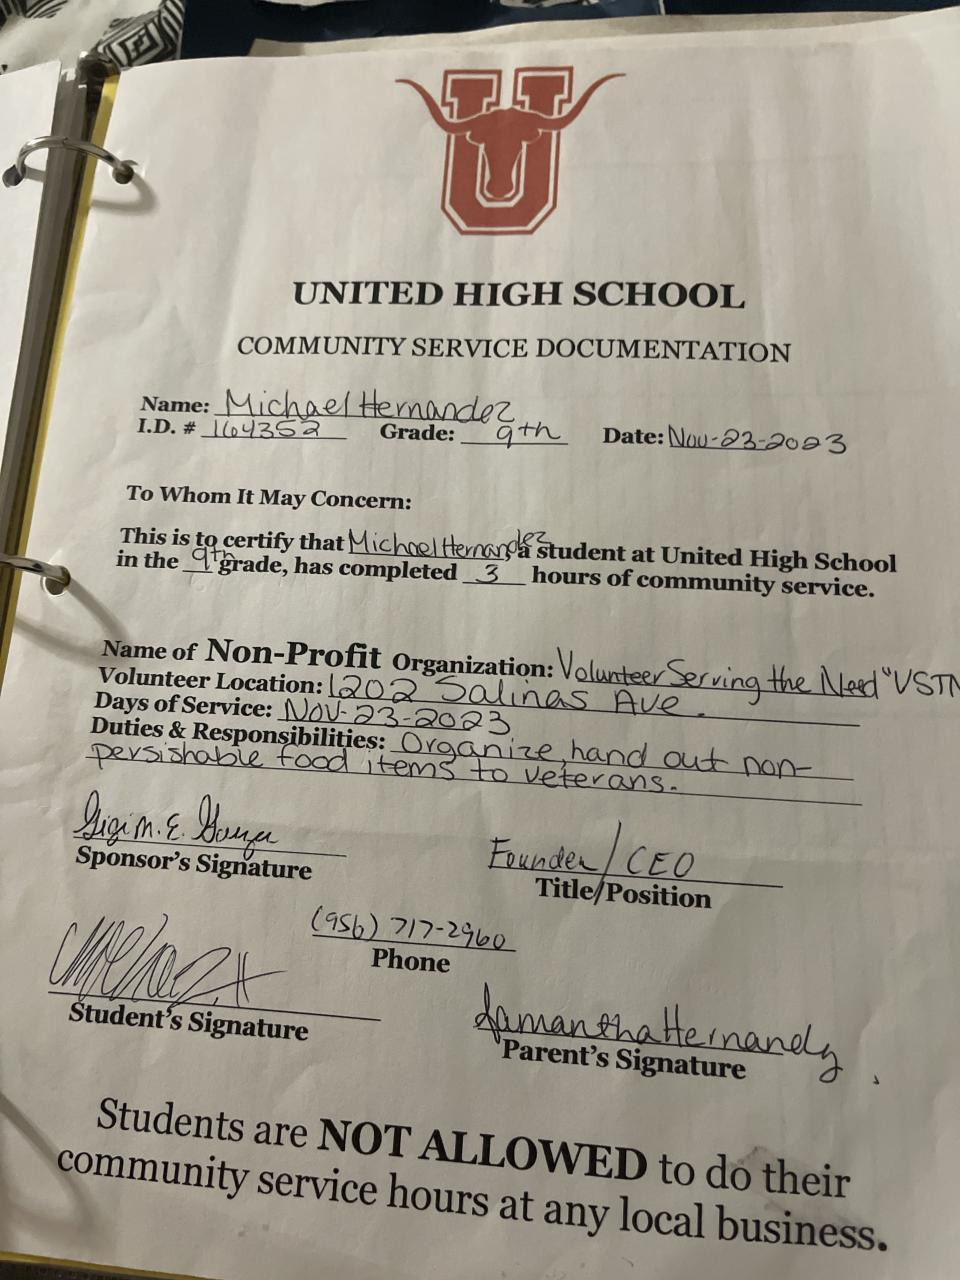 U
UNITED HIGH SCHOOL
COMMUNITY SERVICE DOCUMENTATION
Name: Michael Hernandez
I.D. # 164352 Grade: 9th Date: Nov-23-2023
To Whom It May Concern:
This is to certify that Michael Hernandez, a student at United High School
in the 9th grade, has completed 3 hours of community service.
Name of Non-Profit Organization: Volunteer Serving the Need "VSTN
Volunteer Location: 1202 Salinas Ave.
Days of Service: Nov-23-2023
Duties & Responsibilities: Organize, hand out non-
persishable food items to veterans.
Gigi M. E. Founder/CEO
Sponsor's Signature Title/Position
(956) 717-2960
Phone
Samantha Hernandez
Student's Signature Parent's Signature
Students are NOT ALLOWED to do their
community service hours at any local business.